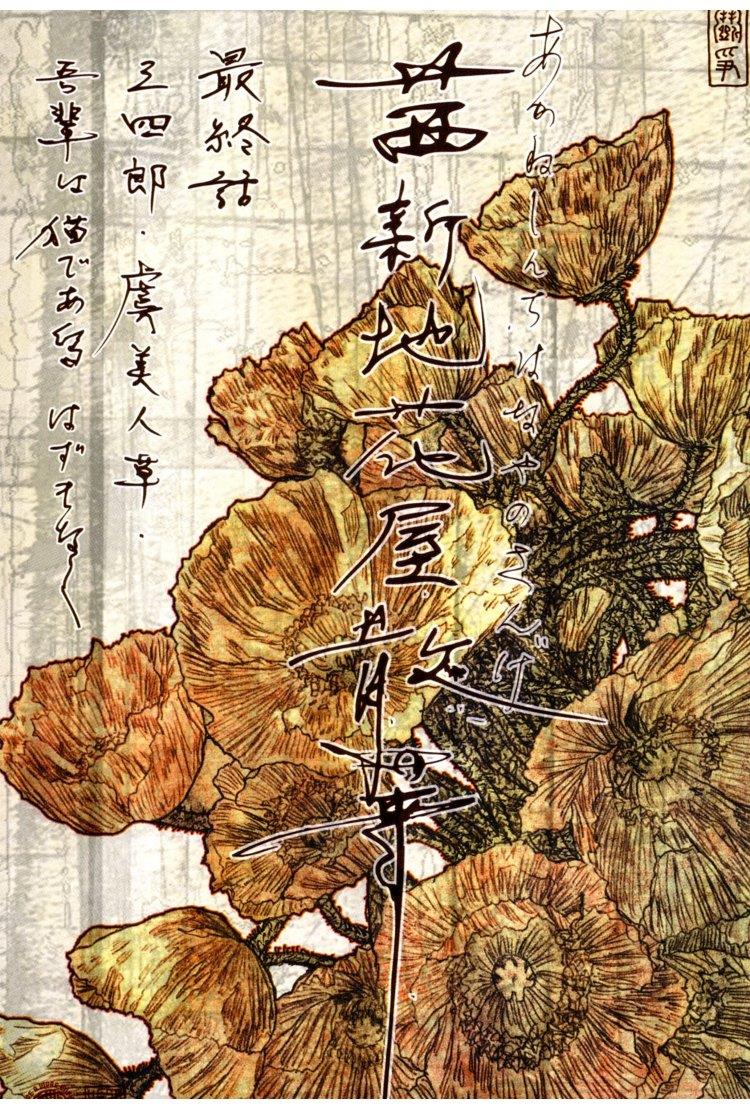 あかねしんちはなやのさんげ
茜新地花屋散華
最終話
三四郎・虞美人草・
吾輩は猫である はずもなく